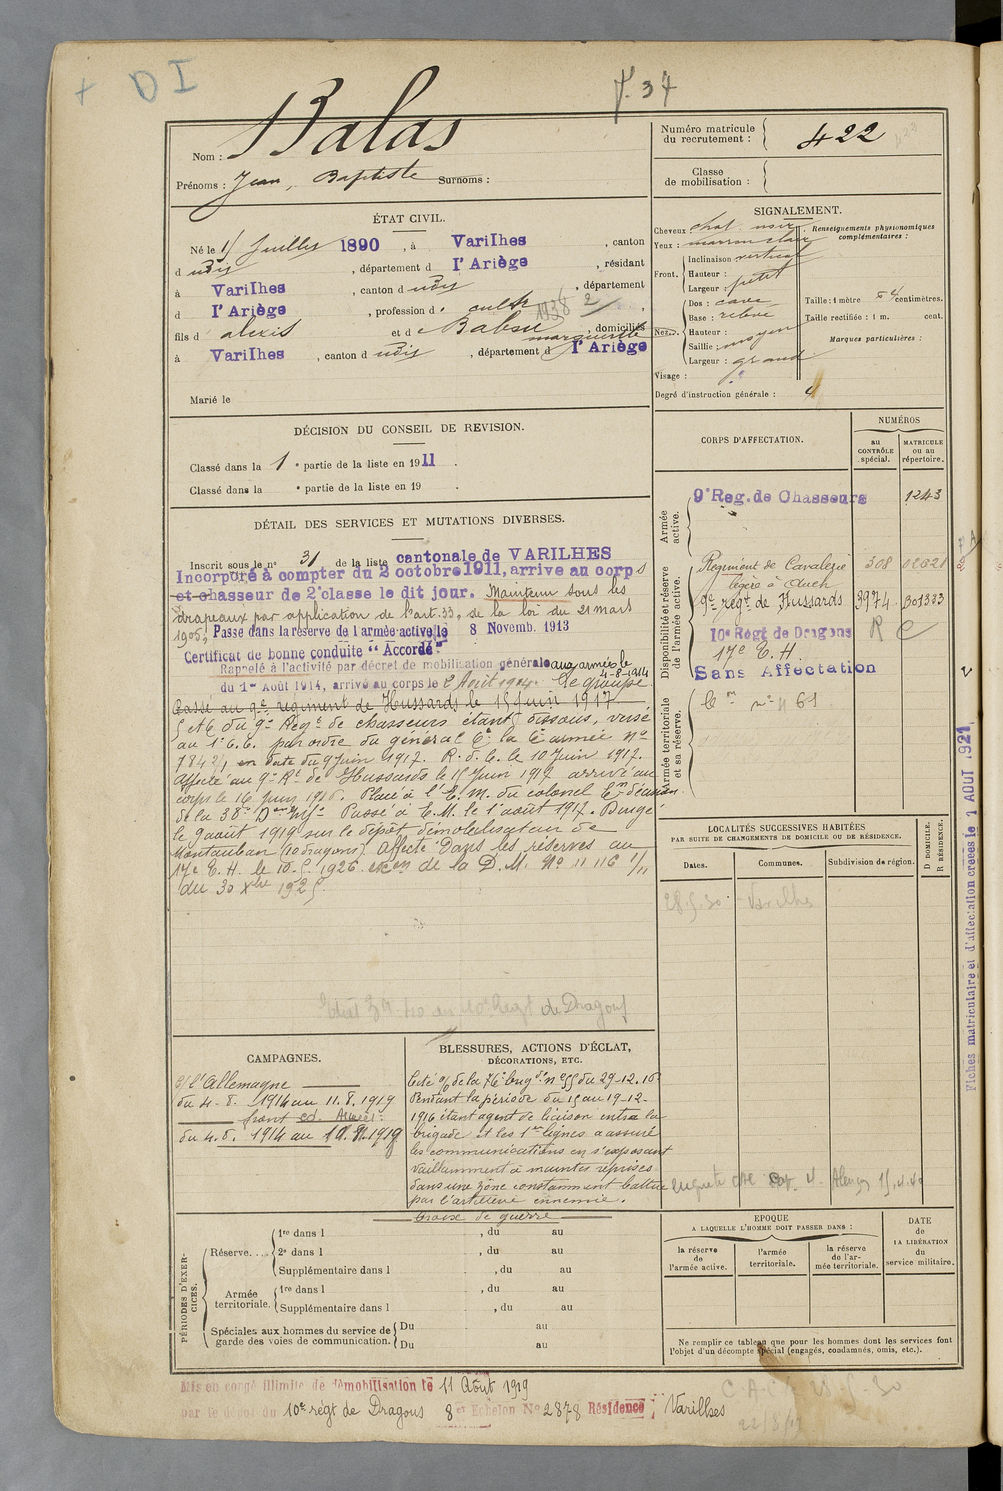 + DI
f. 37
Nom : Balas
Prénoms : Jean, Baptiste Surnoms :
Numéro matricule du recrutement : 422
Classe de mobilisation :
ÉTAT CIVIL.
Né le 15 Juillet 1890, à Varilhes, canton
d udit, département d l'Ariège, résidant
à Varilhes, canton d udit, département
d l'Ariège, profession d cultr
1938 2
fils d alexis et d Marguerite, domiciliés
à Varilhes, canton d udit, département d l'Ariège
Marié le
SIGNALEMENT.
Cheveux : chat. noir
Yeux : marron clair
Front. Inclinaison vertical
Hauteur :
Largeur : petit
Nez. Dos : cave
Base : relevé
Hauteur :
Saillie : moyen
Largeur : grand
Visage :
Renseignements physionomiques complémentaires :
Taille : 1 mètre centimètres.
Taille rectifiée : 1 m. cent.
Marques particulières :
Degré d'instruction générale :
DÉCISION DU CONSEIL DE REVISION.
Classé dans la 1e partie de la liste en 1911.
Classé dans la e partie de la liste en 19 .
DÉTAIL DES SERVICES ET MUTATIONS DIVERSES.
Inscrit sous le n° 31 de la liste cantonale de VARILHES
Incorporé à compter du 2 octobre 1911, arrive au corps
et chasseur de 2e classe le dit jour. Maintenu sous les
drapeaux par application de l'art. 33, de la loi du 21 mars
1905, Passe dans la réserve de l'armée active le 8 Novemb. 1913
Certificat de bonne conduite "Accordé"
Rappelé à l'activité par décret de mobilisation générale aux armées le 4-8-1914
du 1er Août 1914, arrivé au corps le 2 Août 1914. Le groupe
Passé au 9e régiment de Hussards le 15 juin 1917
du 9e Régt de chasseurs étant dissous, versé
au par ordre du général Ct la armée n°
7842/, en date du 9 juin 1917. R. d. C. le 10 juin 1917.
Affecté au 9e Rt de Hussards le 15 Juin 1917 arrivé au
corps le 16 Juin 1916. Placé à l'E. M. du colonel
de la 38e Don Passé à E. M. le 1er août 1917. Dirigé
le 9 août 1919 sur le dépôt démobilisateur de
Montauban (10 dragons). Affecté dans les réserves au
17e C. H. le 10.5.1926. de la D. M. No 11 116 1/11
du 30 Xbre 1925
de Dragons
CORPS D'AFFECTATION.
NUMÉROS
au CONTRÔLE spécial.
MATRICULE ou au répertoire.
Armée active.
9e Reg. de Chasseurs 1243
Disponibilité et réserve de l'armée active.
Régiment de Cavalerie 308
légère à Auch
9e régt de Hussards
10e Régt de Dragons R C
17e C. H.
Sans Affectation
Armée territoriale et sa réserve.
LOCALITÉS SUCCESSIVES HABITÉES
PAR SUITE DE CHANGEMENTS DE DOMICILE OU DE RÉSIDENCE.
Dates. Communes. Subdivision de région.
D DOMICILE. R RÉSIDENCE.
28.5.30 Varilhes
Fiches matriculaire et d'affectation créées le 1 AOUT 1921
CAMPAGNES.
c/ l'Allemagne
du 4-8-1914 au 11.8.1919
front
du 4.8.1914 au
BLESSURES, ACTIONS D'ÉCLAT,
DÉCORATIONS, ETC.
Cité o/ de la 76e brigde n° 55 du 29-12-16
Pendant la période du 15 au 19-12-
1916 étant agent de liaison entre la
brigade et les 1res lignes a assuré
les communications en s'exposant
vaillamment à maintes reprises
dans une zône constamment battue
par l'artillerie ennemie.
Croix de guerre
PÉRIODES D'EXERCICES.
Réserve.... 1re dans l , du au
2e dans l , du au
Supplémentaire dans l , du au
Armée territoriale. 1re dans l , du au
Supplémentaire dans l , du au
Spéciales aux hommes du service de garde des voies de communication. Du au
Du au
EPOQUE
A LAQUELLE L'HOMME DOIT PASSER DANS :
la réserve de l'armée active.
l'armée territoriale.
la réserve de l'armée territoriale.
DATE de LA LIBÉRATION du service militaire.
Ne remplir ce tableau que pour les hommes dont les services font
l'objet d'un décompte spécial (engagés, condamnés, omis, etc.).
Mis en congé illimité de démobilisation le 11 Août 1919
par le dépôt du 10e régt de Dragons 8e Echelon No 2878 Résidence : Varilhes